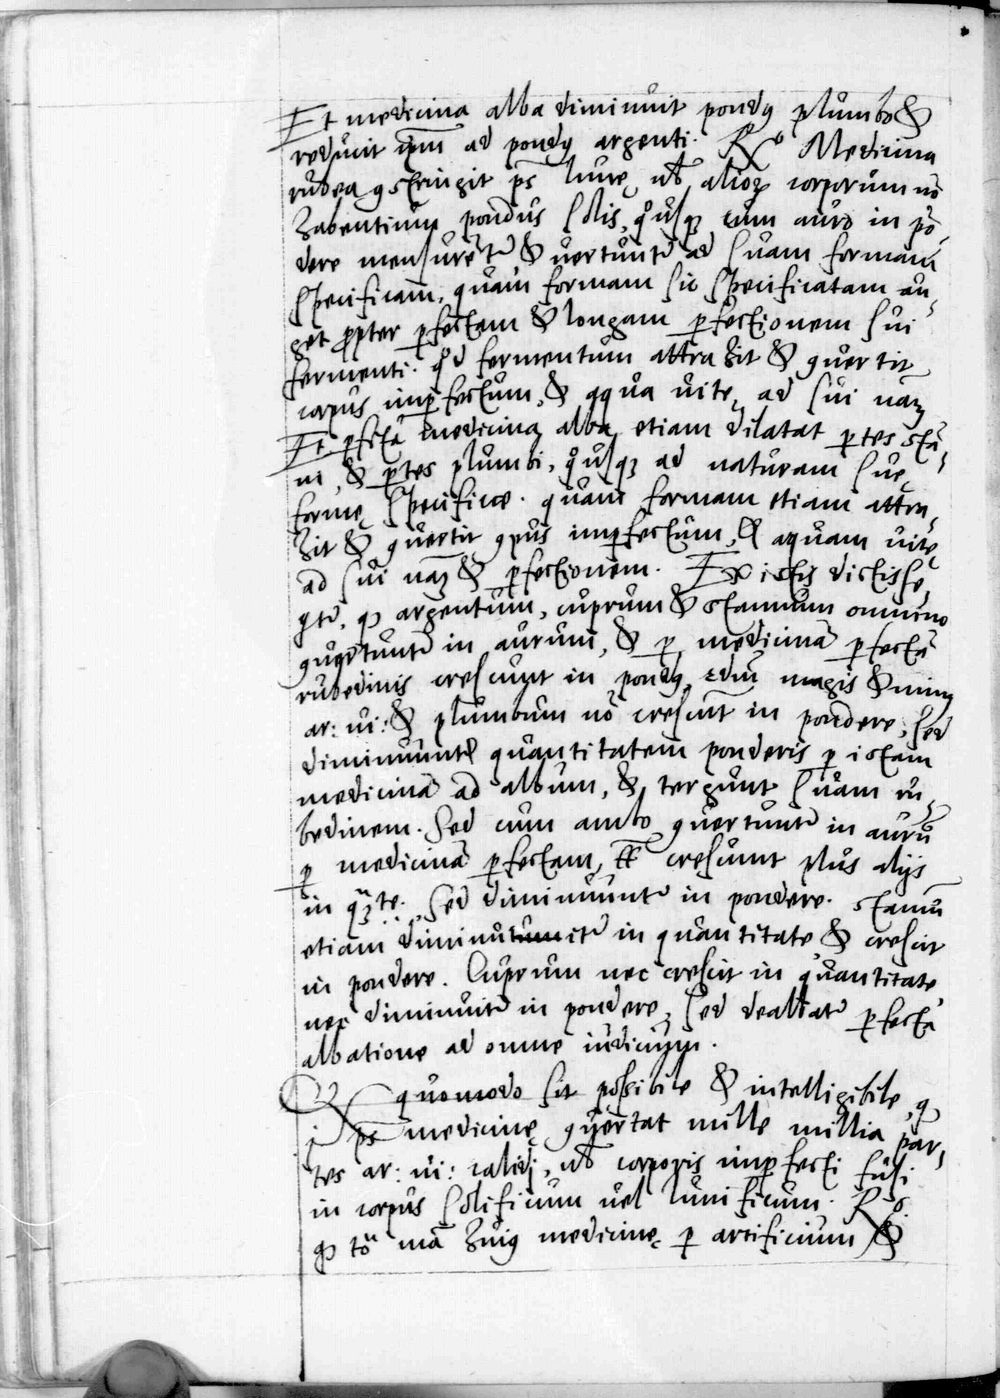 Et medicina alba diminuit pondꝰ plumbo &
reducit ip̄m ad pondꝰ argenti. R͞o Medicina
rubea ꝯstringit p̄s lunę, ul̄ alioꝝ corporum nō
habentium pondus solis, qͦusqꝫ cum auro in pō
dere mensurētur & uertunt᷑ ad suam formam
specificam, quam formam sic specificatam au-
get ꝓpter ꝑfectam & longam ꝑfectionem sui
fermenti. qd̄ fermentum attrahit & ꝯuertit
corpus imꝑfectum, & aqua uitę ad sui nām
Et ꝑfectā medicina alba etiam dilatat ꝑtes stā-
ni, & ꝑtes plumbi, qͦusqꝫ ad naturam suę
formę specificę. quam formam etiam attra-
hit & ꝯuertit ꝯpus imꝑfectum, & aquam uitę
ad sui nāꝫ & ꝑfectionem. Ex istis dictis se-
qt᷑, ꝙ argentum, cuprum & stannum omnino
ꝯuertunt᷑ in aurum, & ꝑ medicinā ꝑfectā
rubedinis crescunt in pondꝰ, magis & minꝰ
ar: ui: & plumbum nō crescūt in pondere, sed
diminuunt᷑ quantitatem ponderis ꝑ istam
medicinā ad album, & tergunt suam ru-
bedinem. Sed cum ambo ꝯuertunt᷑ in aurū
ꝑ medicinā ꝑfectam, crescunt plus alijs
in qͣꝫte. Sed diminuunt᷑ in pondere. stannū
etiam diminuit᷑ in quantitate & crescit
in pondere. Cuprum nec crescit in quantitate
nec diminuit᷑ in pondere, sed dealbat᷑ ꝑfectā
albatione ad omne iudicium.
quomodo sit possibile & intelligibile, ꝙ
j p̄s medicinę ꝯuertat mille millia par-
tes ar: ui: calidi, ul̄ corporis imꝑfecti fusi
in corpus solificum uel lunificum. R͞o.
ꝙ tōͣ mā huiꝰ medicinę ꝑ artificium &